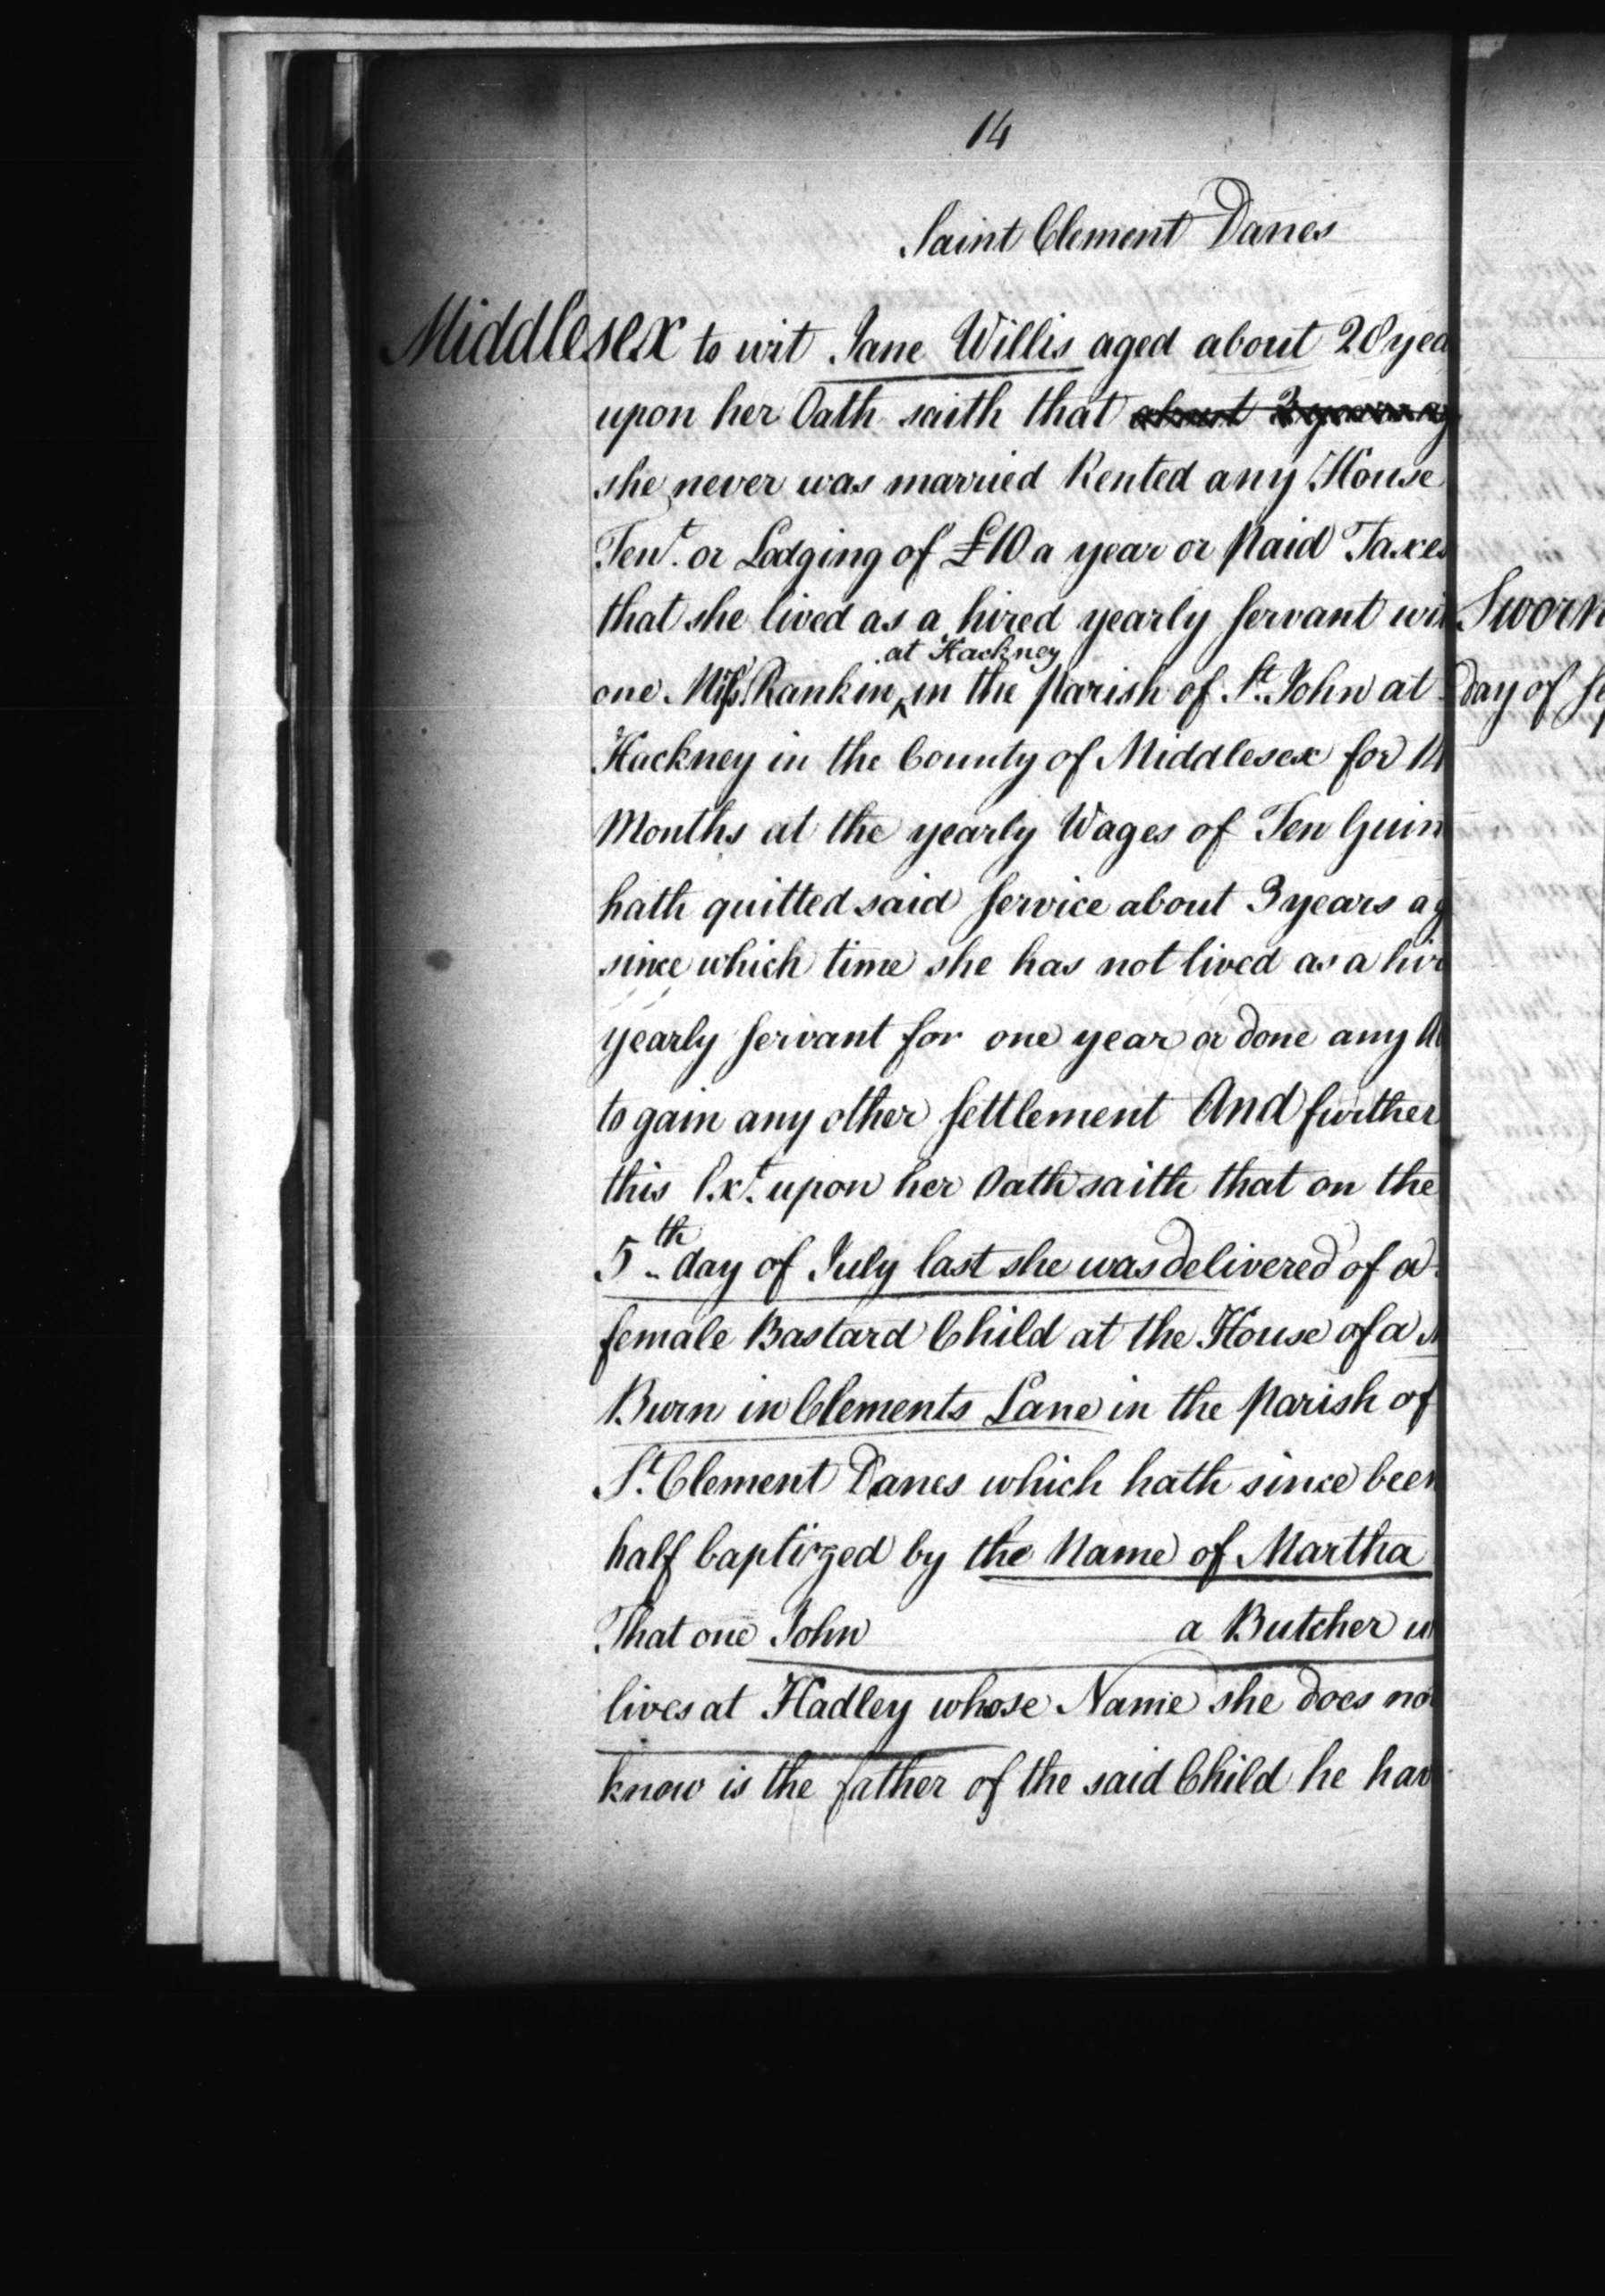 14
Saint Clement Danes
Middlesex to wit Jane Willis aged about 28 yea
upon her Oath saith that about 3 years ag
she never was married Rented any House
Tent. or Lodging of £10 a year or paid Taxes
that she lived as a hired yearly servant wi
at Hackney
one Miss Rankin in the parish of St. John at
Hackney in the County of Middlesex for
Months at the yearly Wages of Ten Guin
hath quitted said service about 3 years ag
since which time she has not lived as a hir
yearly servant for one year or done any
to gain any other settlement And further
this Ext. upon her Oath saith that on the
5th day of July last she was delivered of a
female Bastard Child at the House of a
Burn in Clements Lane in the parish of
St. Clement Danes which hath since been
half baptized by the Name of Martha
That one John a Butcher w
lives at Hadley whose Name she does no
know is the father of the said Child he hav
Sworn
day of Se